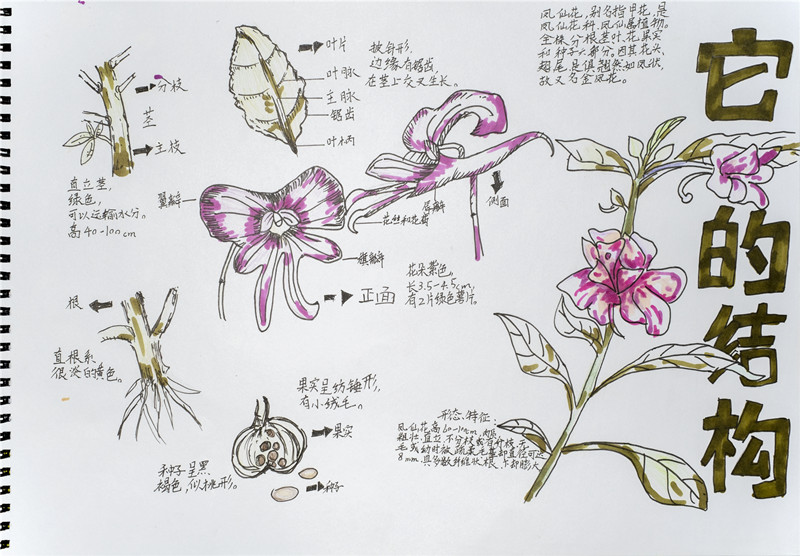 它的结构
凤仙花，别名指甲花，是
凤仙花科、凤仙属植物。
全株分根、茎、叶、花、果实
和种子六部分，因其花头、
翅、尾、足俱翘然如凤状，
故又名金凤花。
分枝
茎
主枝
直立茎，
绿色，
可以运输水分。
高40-100cm
叶片
叶脉
主脉
锯齿
叶柄
披针形，
边缘有锯齿，
在茎上交叉生长。
翼瓣
唇瓣
花丝和花药
旗瓣
正面
侧面
花朵紫色，
长3.5-4.5cm，
有2片绿色萼片。
根
直根系
很淡的黄色。
果实呈纺锤形，
有小绒毛。
果实
种子
种子呈黑
褐色，似桃形。
形态、特征：
凤仙花高60-10cm，肉质，
粗壮，直立，不分枝或有分枝，无
毛或幼时
8mm，具多数纤维状根，下部
膨大